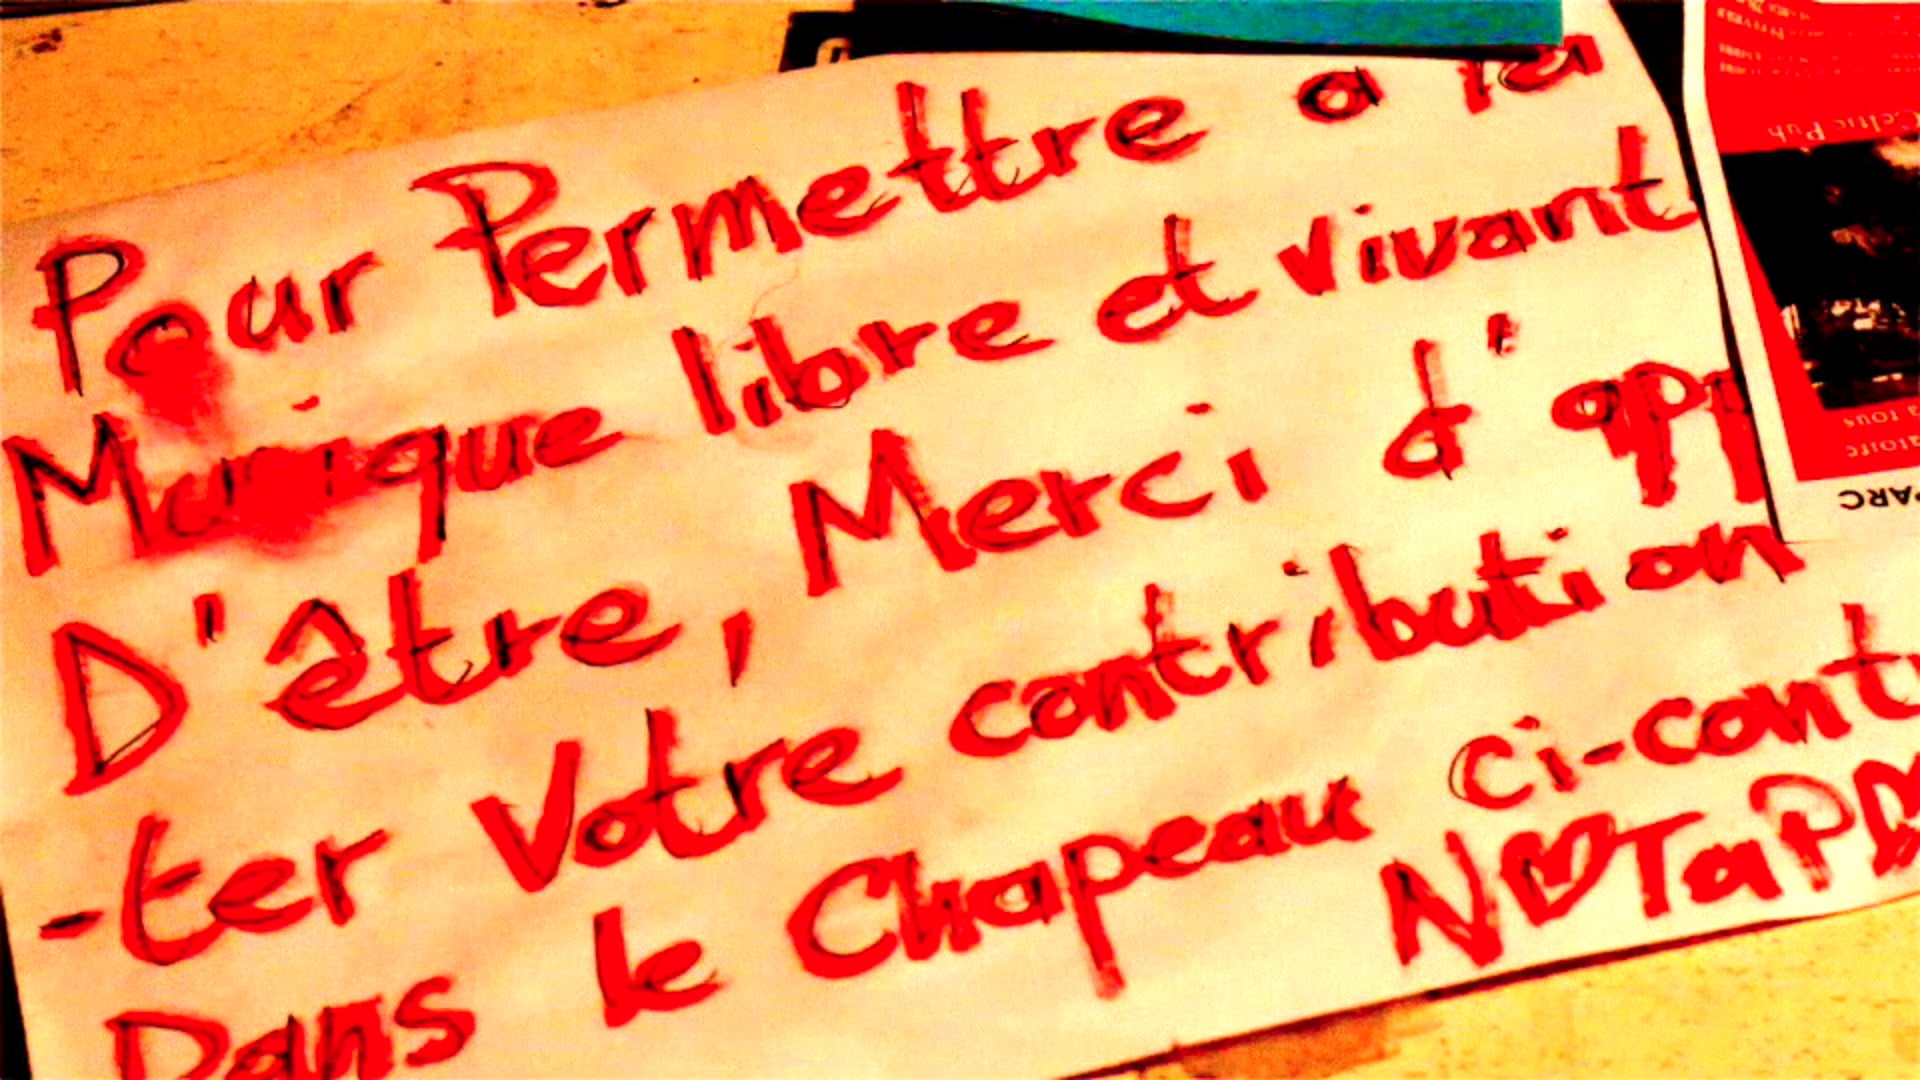 Pour Permettre a la
Musique libre et vivant
D'être, Merci d'app
-ter Votre contribution
Dans le Chapeau ci-cont
N♥TaPD
Celtic Pub
a tous
PARC